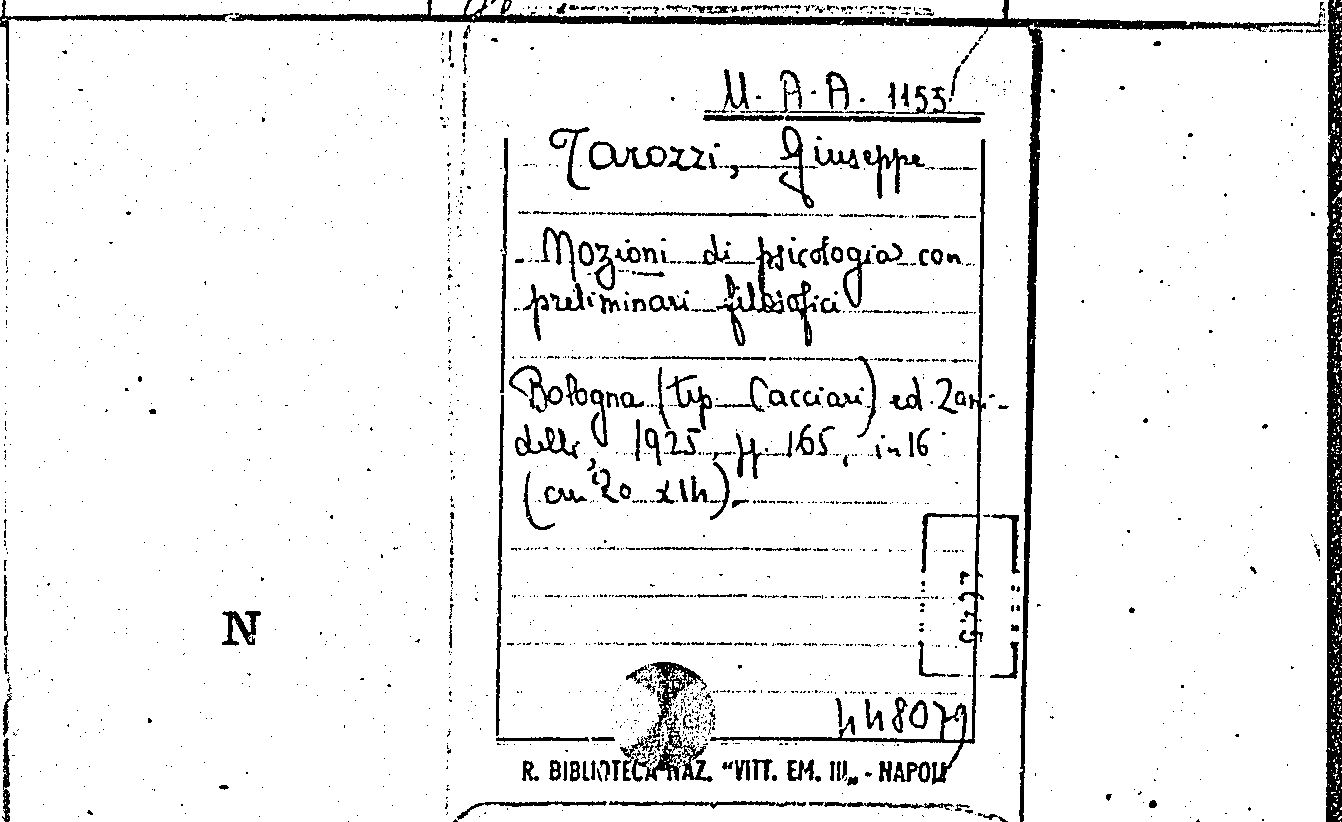 M. A. A. 1155
Tarozzi, Giuseppe
- Nozioni di psicologia con
preliminari filosofici
Bologna (tip. Cacciari) ed. Zani-
delli, 1925, pp. 165, in 16
(cm 20 x 14).
N
448079
R. BIBLIOTECA NAZ. "VITT. EM. III„ - NAPOLI